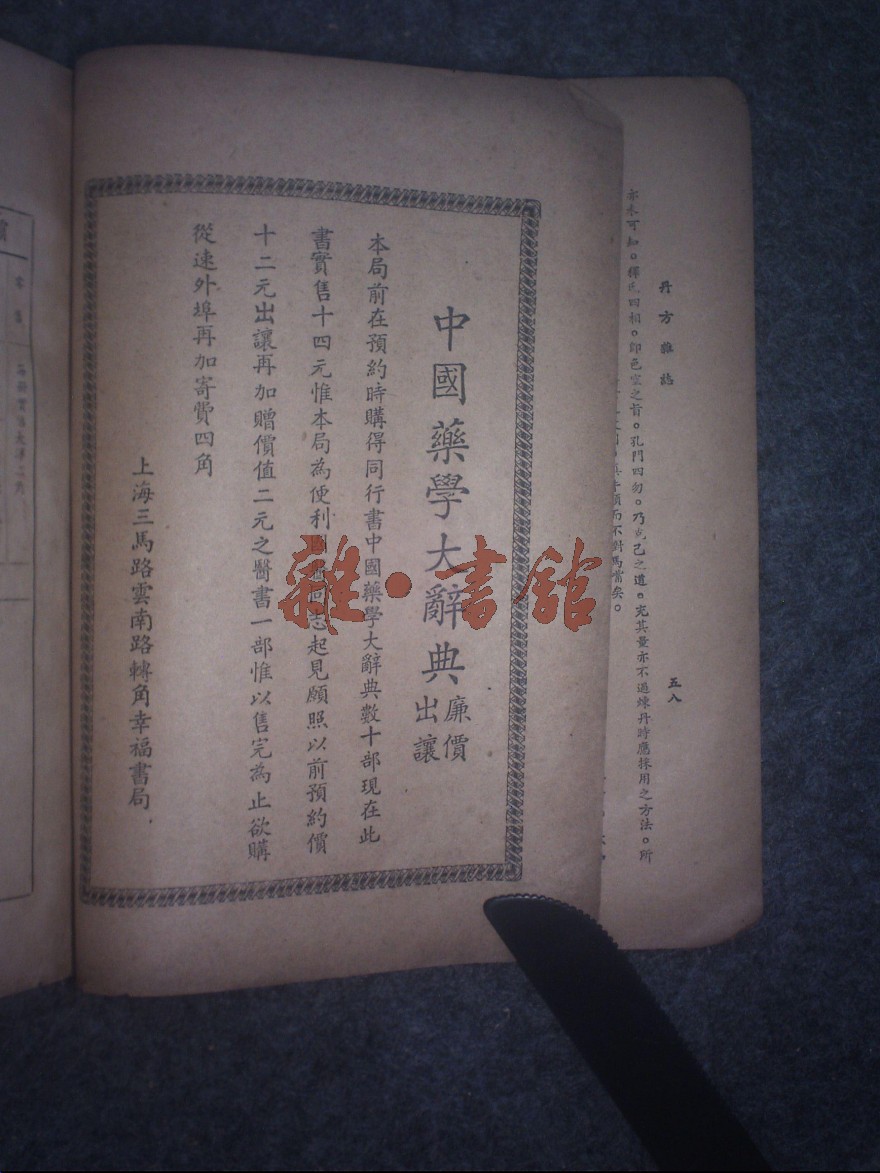 丹方雜誌
五八
亦未可知。釋氏四相。卽色空之旨。孔門四勿。乃克己之道。充其量亦不過煉丹時應採用之方法。所
而不對馬嘴矣。
中國藥學大辭典
廉價
出讓
本局前在預約時購得同行書中國藥學大辭典數十部現在此
書實售十四元惟本局為便利國醫同志起見願照以前預約價
十二元出讓再加贈價值二元之醫書一部惟以售完為止欲購
從速外埠再加寄費四角
上海三馬路雲南路轉角幸福書局
雜·書館